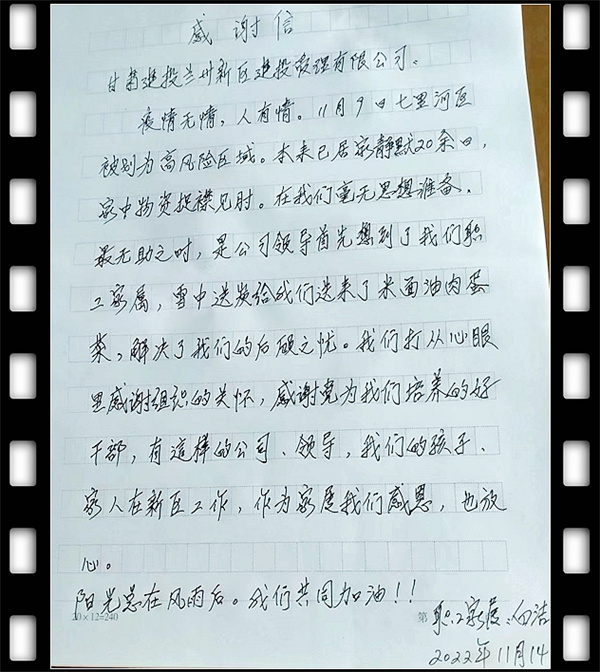 感谢信
甘肃建投兰州新区建投管理有限公司.
疫情无情,人有情。11月9日七里河区
被划为高风险区域。本来已居家静默20余日,
家中物资捉襟见肘。在我们毫无思想准备.
最无助之时,是公司领导首先想到了我们职
工家属,雪中送炭给我们送来了米面油肉蛋
菜,解决了我们的后顾之忧。我们打从心眼
里感谢组织的关怀,感谢党为我们培养的好
干部,有這样的公司、领导,我们的孩子、
家人在新区工作,作为家属我们感恩,也放
心。
阳光总在风雨后。我们共同加油!!
20×12=240
第
职工家属:向洁
2022年11月14